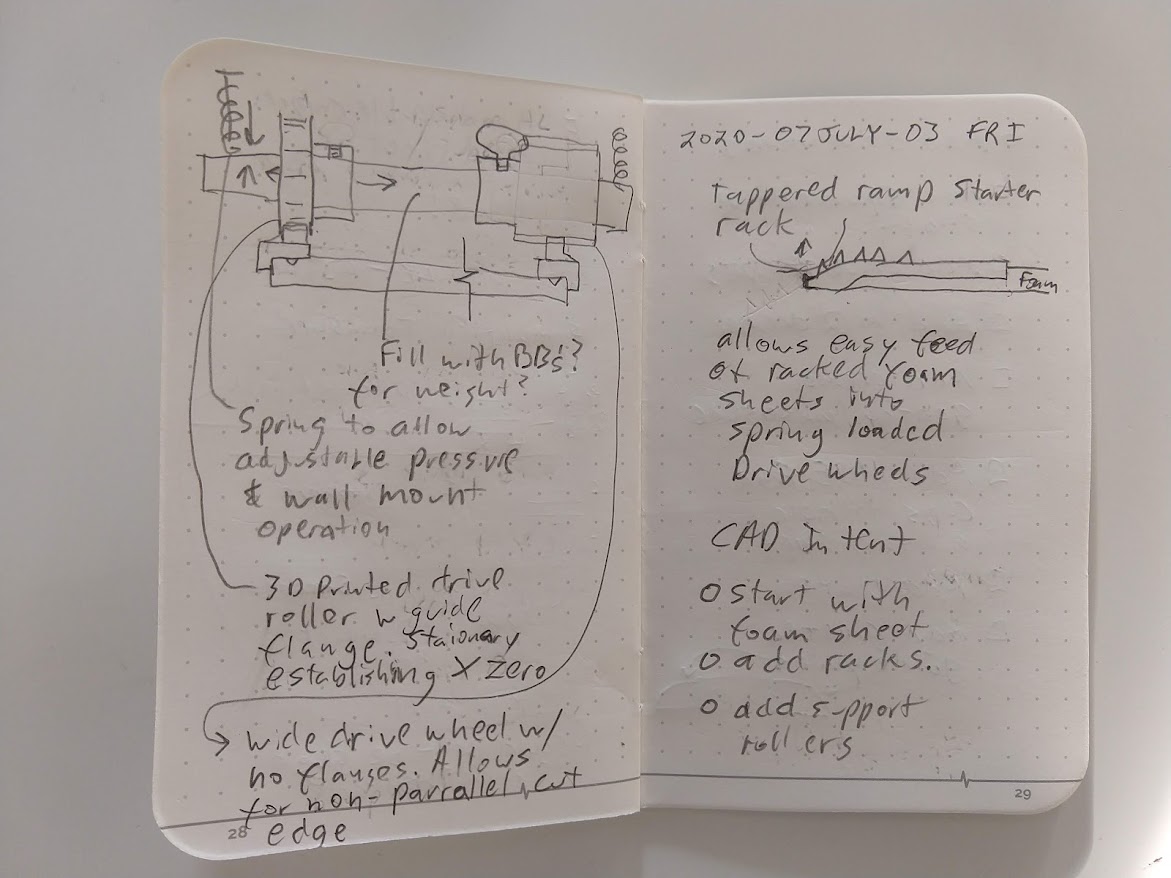 Fill with BBs?
for weight?
Spring to allow
adjustable pressure
& wall mount
operation
3D Printed drive
roller w guide
flange. Staionary
establishing X zero
wide drive wheel w/
no flanges. Allows
for non-parrallel cut
edge
28
2020-07JULY-03 FRI
Tappered ramp starter
rack
Foam
allows easy feed
of racked foam
sheets into
spring loaded
Drive wheels
CAD Intent
O start with
foam sheet
O add racks.
O add support
rollers
29